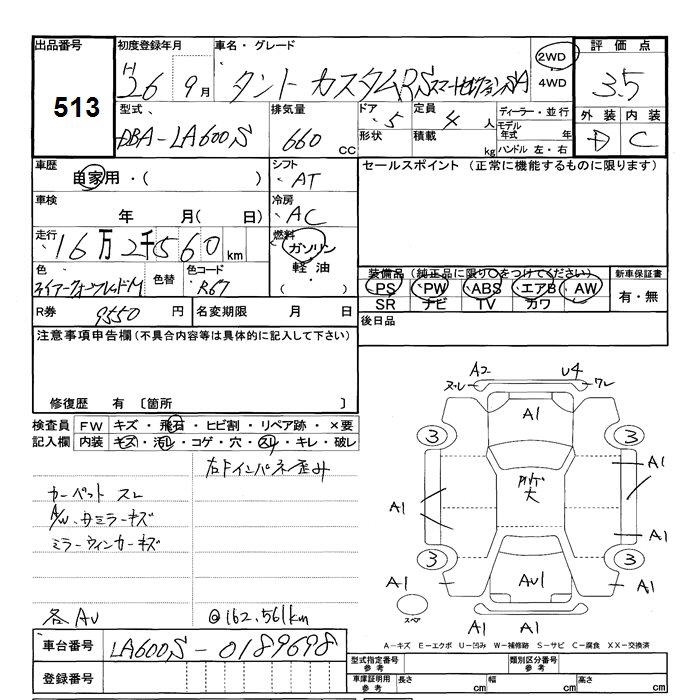 出品番号 初度登録年月 車名・グレード 2WD 評価点
513 H26年 9月 タント カスタムRSスマートセレクションSA 4WD 3.5
型式 排気量 ドア 定員 ディーラー・並行 外装 内装
DBA-LA600S 660 CC 5 4人 モデル年式 年 D C
形状 積載 kg ハンドル 左・右
車歴 自家用・( ) シフト AT セールスポイント (正常に機能するものに限ります)
車検 年 月( 日) 冷房 AC
走行 16万2千560km 燃料 ガソリン 軽油
色 色替 色コード R67 装備品 (純正品に限り○をつけてください) 新車保証書
PS PW ABS エアB AW 有・無
SR ナビ TV カワ
R券 9550円 名変期限 月 日 後日品
注意事項申告欄(不具合内容等は具体的に記入して下さい)
修復歴 有 〔箇所 〕
検査員 FW キズ・飛石・ヒビ割・リペア跡・×要
記入欄 内装 キズ・汚レ・コゲ・穴・スレ・キレ・破レ
カーペット スレ
A/W・ミラーキズ
ミラーウィンカーキズ
各AU @162.561km
A2 U4
スレ ワレ
A1
3 3
A1
A1 A1
A1
3 3
A1 AU1 A1
スペア A1 A1
A-キズ E-エクボ U-凹み W-補修跡 S-サビ C-腐食 XX-交換済
車台番号 LA600S-0189698
登録番号
型式指定番号 参考 類別区分番号 参考
車庫証明用 参考 長さ cm 幅 cm 高さ cm